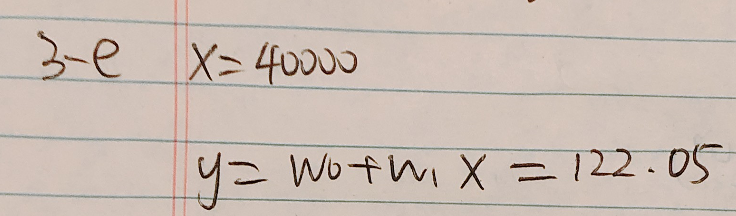 3-e x=40000
y= w0+w1 x = 122.05